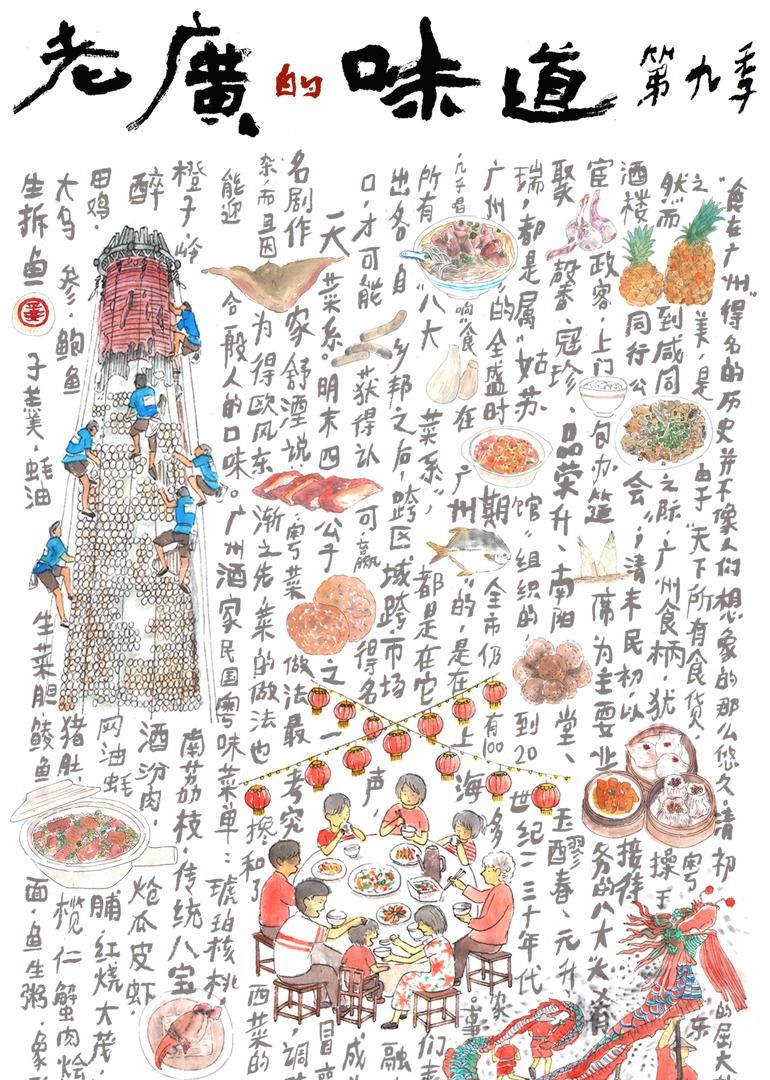 老廣的味道 第九季
"食在广州"得名的历史并不像人们想象的那么悠久,清初的屈大
之美,是由于"天下所有食货,粤
然而到咸同之际,广州食柄,犹操于
酒楼同行公会",清末民初,以接待
宦政客,上门包办筵席为主要业务的八大
聚馨、冠珍、品荣升、南阳堂、玉醪春、元升
瑞,都是属"姑苏馆"组织的,到20世纪二三十年代
广州的全盛时期,全市仍有100多家
几乎唱响"食在广州"的,是在上海。事
所有"八大菜系",都是在它们
出各自乡邦之后,跨区域跨市场融
口,才可能获得认可,赢得名声,成
一天菜系。明末四公子之一冒
名剧作家舒湮说:粤菜做法最考究,调
杂,而且因为得欧风东渐之先,菜的做法也掺和了西菜的
能迎合一般人的口味。广州酒家民国粤味菜单:琥珀核桃,
橙子,岭南荔枝,传统八宝
醉酒汾肉,炝瓜皮虾,
田鸡,网油蚝脯,红烧大茂
大乌参,鲍鱼猪肚,榄仁蟹肉烩
生拆鱼子羹,蚝油生菜胆,鲮鱼面,鱼生粥,象形